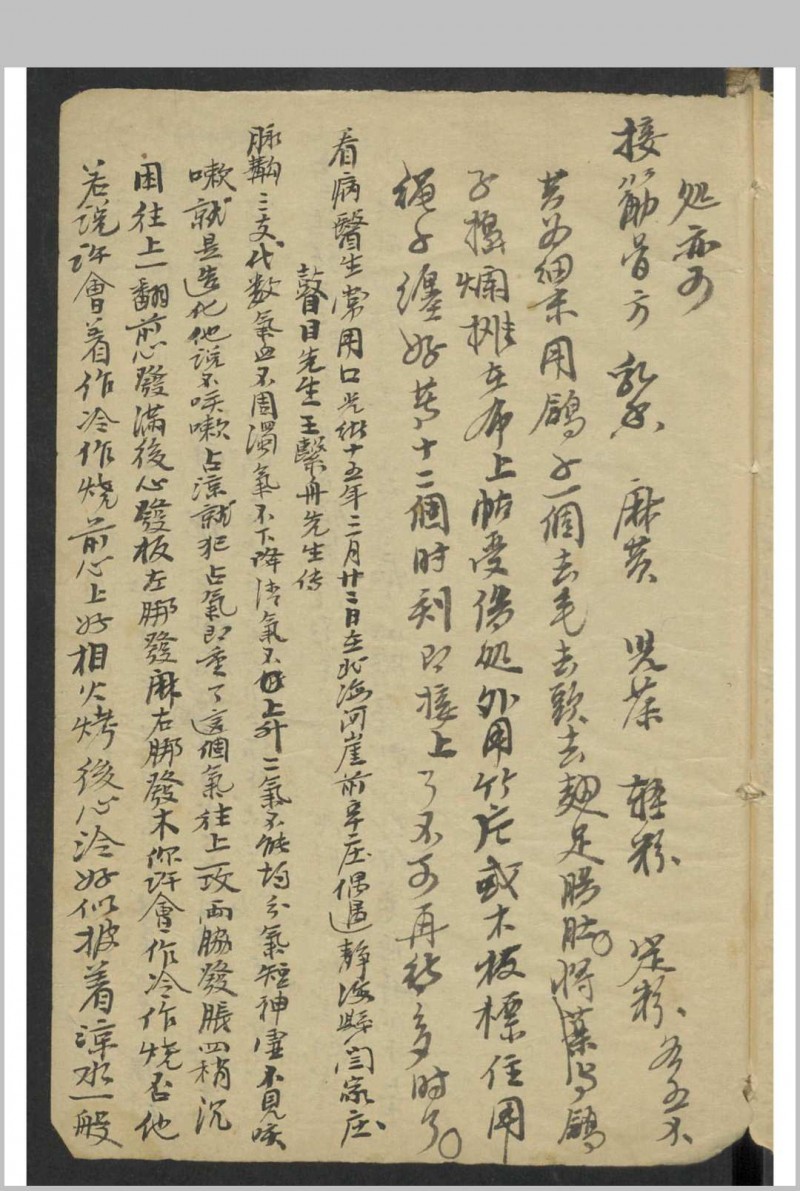 处亦可
接筋骨方 乳香 麻黄 児茶 轻粉 定粉 各五
共为细末用鴿子一個去毛去頭去翅足腸肚将藥与鴿
子搗爛摊在布上帖受傷処外用竹片或木板標住用
繩子纏好等十二個时刻即接上了不可再待多时了
看病醫生常用口光緒十五年三月廿二日在北海河崖前辛庄偶遇静海縣闫家庄
瞽目先生王繫舟先生传
脉 三支代数氣血不周濁氣不下降清氣不上升二氣不能均分氣短神虚不見咳
嗽就是造化他说不咳嗽占涼就犯占氣即重了這個氣往上一攻兩脇發脹四稍沉
困往上一翻前心發滿後心發板左脚發麻右脚發木你許會作冷作燒否他
若说許會着作冷作燒前心上好相火烤後心冷好似披着涼水一般